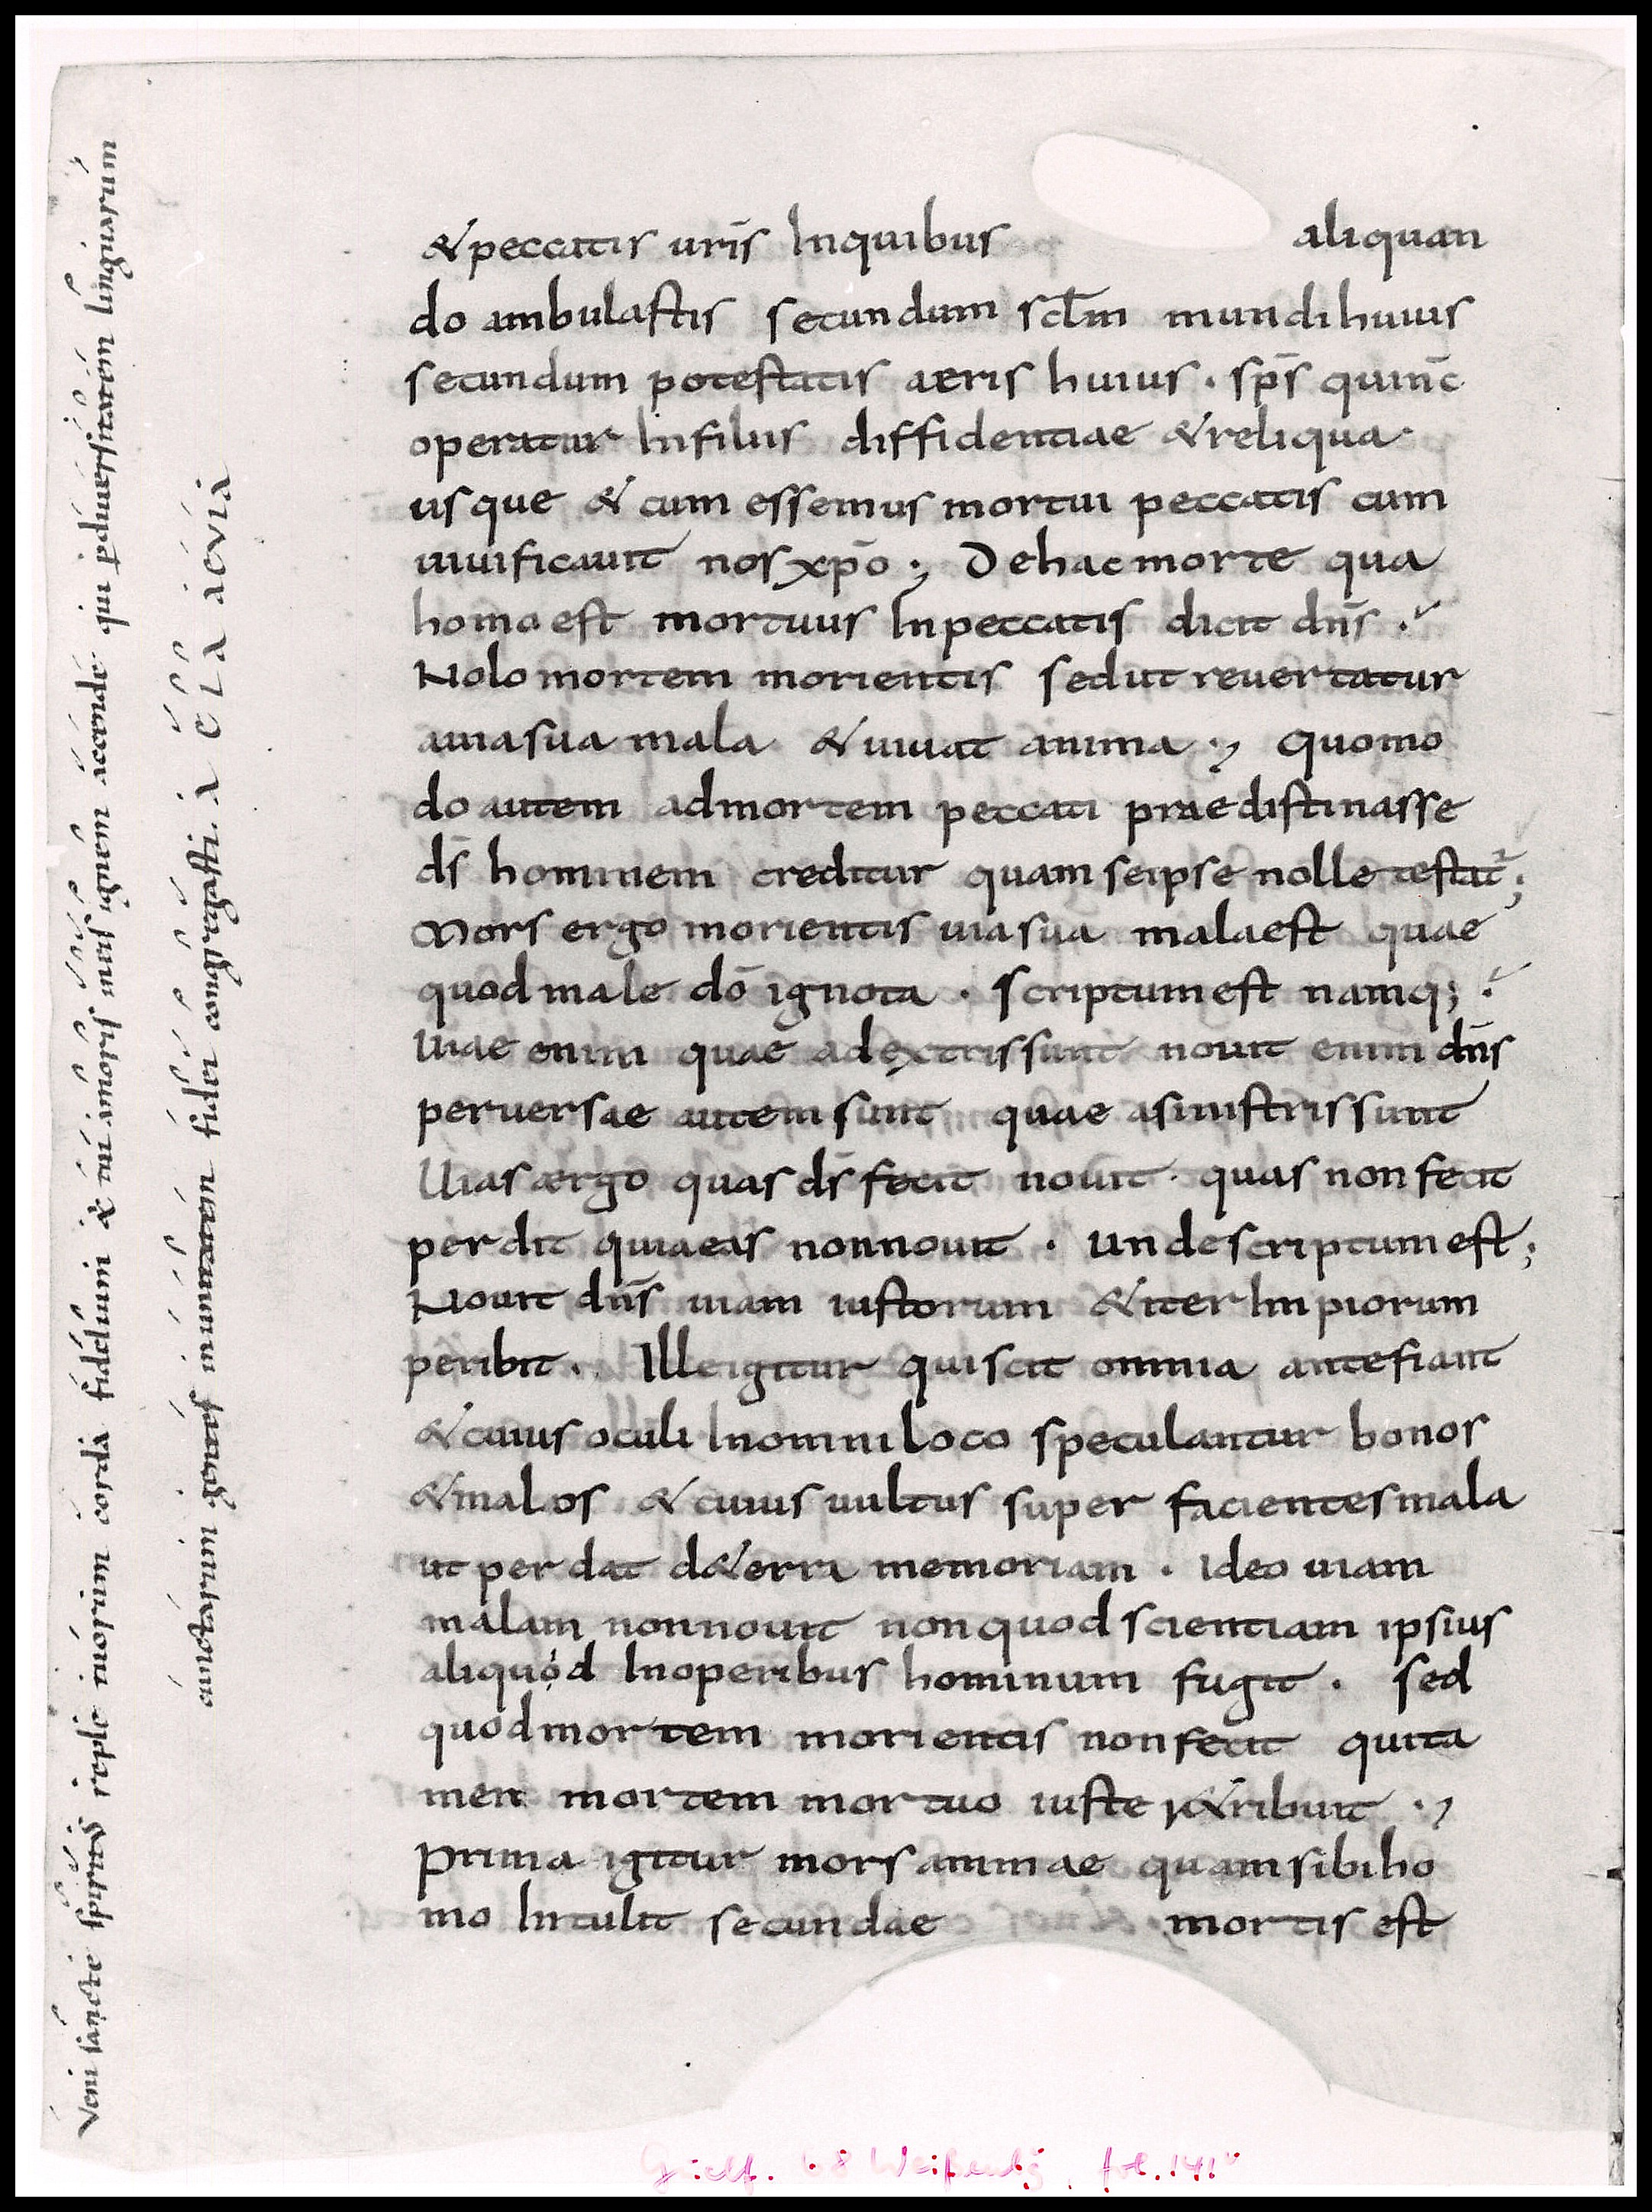 & peccatis uris̄ Inquibus aliquan
do ambulastis secundum scl̄m mundi huius
secundum potestatis aeris huius · sps̄ quinc̄
operatur Infiliis diffidentiae & reliqua
usque & cum essemus mortui peccatis cum
uiuificauit nos xp̄o ·, De hac morte qua
homo est mortuus Inpeccatis dicit dn̄s ·
Nolo mortem morientis sed ut reuertatur
a uia sua mala & uiuat anima ·, Quomo
do autem ad mortem peccati praedistinasse
ds̄ hominem creditur quam se ipse nolle testat᷑;
Mors ergo morientis uia sua mala est quae
quod male dō ignota · scriptum est namq; ·
Uiae enim quae ad extris sunt nouit enim dn̄s
peruersae autem sunt quae a sinistris sunt
Uias ergo quas ds̄ fecit nouit · quas non fecit
perdit quia eas non nouit · unde scriptum est;
Nouit dn̄s uiam iustorum & iter Impiorum
peribit · Ille igitur qui scit omnia antefiant
& cuius oculi Inomni loco speculantur bonos
& malos & cuius uultus super facientes mala
ut perdat d&erra memoriam · Ideo uiam
malam non nouit non quod scientiam ipsius
aliquod Inoperibus hominum fugit · sed
quod mortem morientis non fecit qui ta
men mortem mortuo iuste r&ribuit ·,
Prima igitur mors animae quam sibi ho
mo Intulit secundae mortis est
Veni sancte spiritus reple tuorum corda fidelium & tui amoris in eis ignem accende qui p̱ diuersitatem linguarum
cunctarum gentes in unitatem fidei congregasti. A E L A AEVIA
Guelf. 68 Weißenbg, fol. 141v